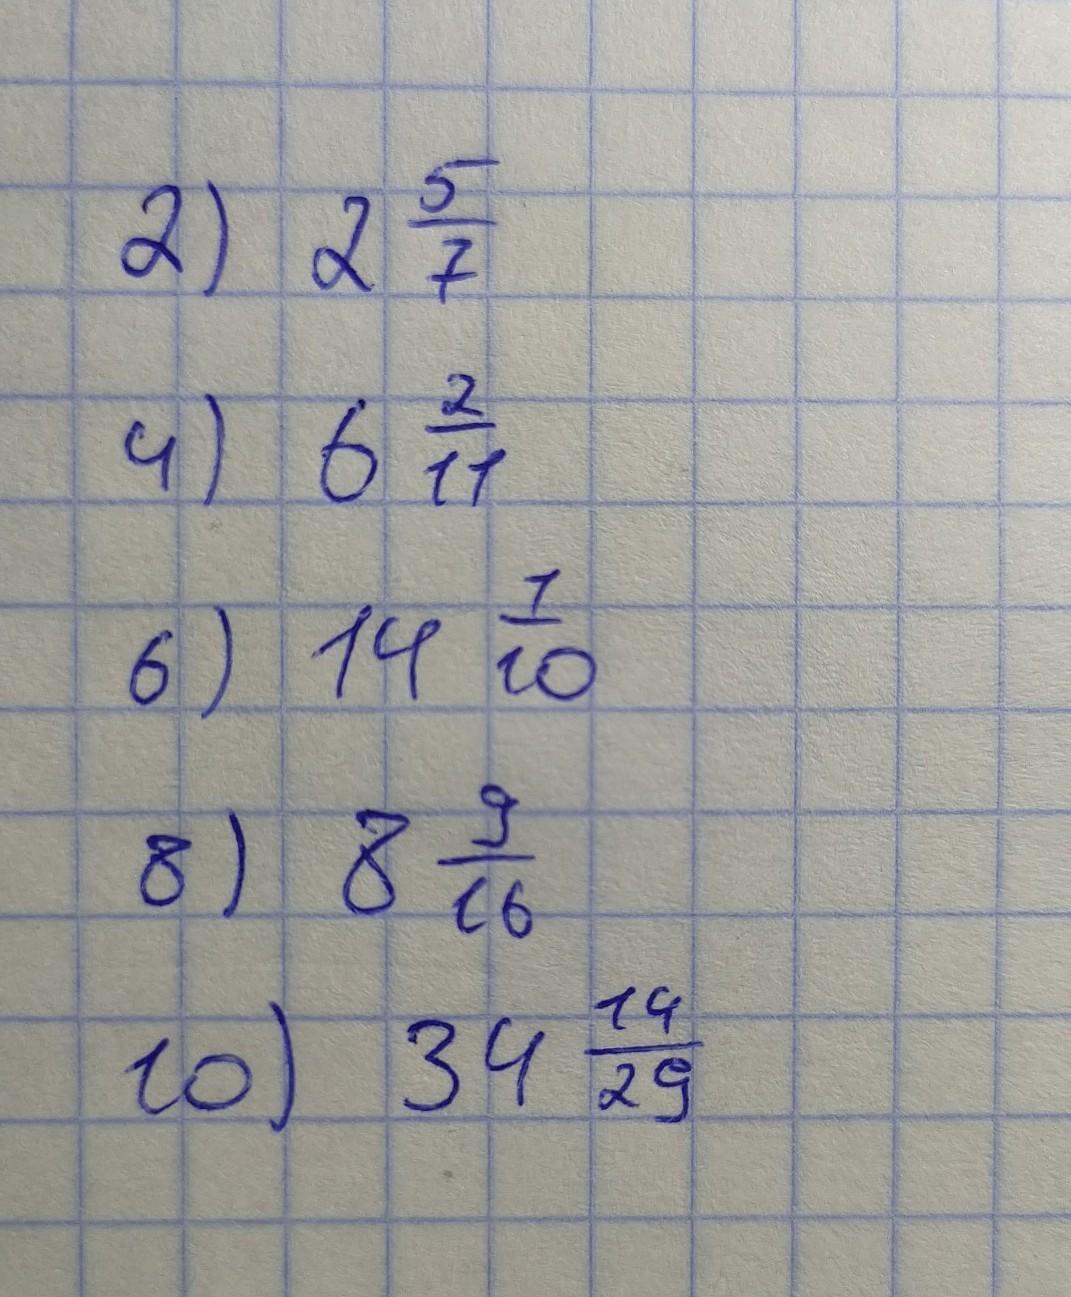 2) 2 5/7
4) 6 2/11
6) 14 1/10
8) 8 9/16
10) 34 14/29